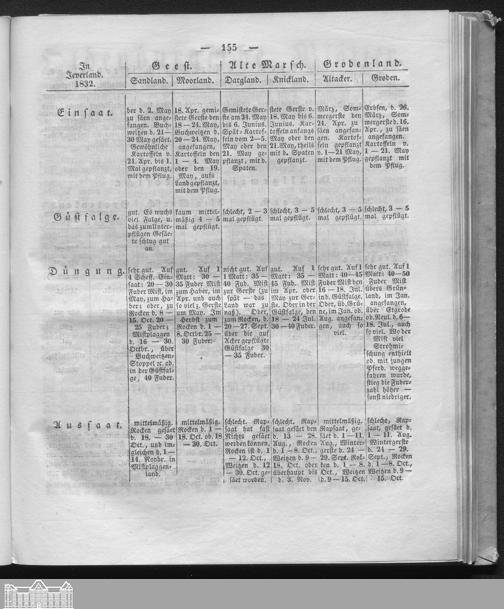 — 155 —
In Jeverland. 1832.
Geest.
Alte Marsch.
Grodenland.
Sandland.
Moorland.
Dargland.
Knickland.
Altacker.
Groden.
Einsaat.
der d. 2. May
zu säen ange-
fangen. Buch-
weitzen d. 21—
30 May gesäet.
Gewöhnliche
Kartoffeln v.
21. Apr. bis 1.
Mai gepflanzt,
mit dem Pflug.
18. Apr. gemi-
stete Gersten den
18—24. May,
Buchweitzen d.
20—24. May,
angefangen,
Kartoffeln den
1—4. May
oder den 19.
May, aufs
Land gepflanzt,
mit dem Pflug.
Gemistete Ger-
ste am 24. May
bis 6. Junius.
Spät-Kartof-
feln vom 2—5.
May oder den
21. May ge-
pflanzt, mit d.
Spaten.
stete Gerste v.
18. May bis 6.
Junius. Kar-
toffeln anfangs
May oder den
21. May, theils
mit d. Spaten
gepflanzt.
März, Som-
mergerste den
24. Apr. zu
säen angefan-
gen. Kartof-
feln gepflanzt
v. 1—21 May,
mit dem Pflug.
Erbsen, d. 26.
März, Som-
mergerste d. 16.
Apr., zu säen
angefangen.
Kartoffeln v.
1—21. May
gepflanzt mit
dem Pflug.
Güstfalge.
gut. Es wuchs
viel Falge, u.
das zum Unter-
pflügen Gesäe-
te schlug gut
an.
kaum mittel-
mäßig 4—5
mal gepflügt.
schlecht, 2—3
mal gepflügt.
schlecht, 3—5
mal gepflügt.
schlecht, 3—5
mal gepflügt.
schlecht, 3—5
mal gepflügt.
Düngung.
sehr gut. Auf
4 Scheff. Ein-
saat: 20—30
Fuder Mist, im
May, zum Ha-
ber; oder, zu
Rocken d. 8—
15. Oct. 20—
25 Fuder;
Mistplaggen
d. 16—30.
Octbr., über
Buchweitzen-
Stoppel oc. od.
in der Güstfal-
ge, 40 Fuder.
gut. Auf 1
Matt: 30—
35 Fuder Mist
zum Haber, im
Apr. und auch
so viel z. Gerste
um May. Im
Herbst zum
Rocken d. 1—
8. Octbr. 25—
30 Fuder.
nicht gut. Auf
1 Matt: 35—
40 Fud. Mist
zur Gerste (zu
spät — das
Land war zu
naß). Oder,
zum Rocken, d.
20—27. Sept.
über die auf
Acker gepflügte
Güstfalge 30
—35 Fuder.
schlecht. Auf 1
Matt: 35—
45 Fud. Mist
im Apr. oder
May zur Ger-
ste. Oder in der
Güstfalge, den
18—24 Jul.
30—40 Fuder.
sehr gut. Auf 1
Matt: 40—45
Fuder Mist den
16—18. Jul.
ind. Güstfalge.
Oder, üb. Grü-
nr, im Jan. od.
Aug. angefan-
gen, auch so
viel.
sehr gut. Auf 1
Matt: 40—50
Fuder Mist
übers Grün-
land, im Jan.
angefangen,
über Etgrode
od. Neul. d. 6—
18. Jul., auch
so viel. Wo der
Mist viel
Strohmi-
schung enthielt
od. mit jungen
Pferd. wegge-
fahren wurde,
stieg die Fuder-
zahl höher —
sonst niedriger.
Aussaat.
mittelmäßig.
Rocken gesäet
d. 18.—30
Oct., und im-
gleichen d. 1—
14. Novbr. in
Mistplaggen-
land.
mittelmäßig.
Rocken d. 1—
18 Oct. od. 18
—30. Oct.
schlecht. Rap-
saat hat fast
Nichts gesäet
werden können.
Rocken ist d. 1
—12. Oct.,
Weitzen d. 12
—30. Oct. ge-
säet worden.
schlecht, Rap-
saat gesäet den
d. 13—28.
Aug., Rocken
d. 1—8. Oct.,
Weitzen d. 9—
18. Oct. oder
überhaupt bis
d. 3. Nov.
mittelmäßig.
Rapsaat, ge-
säet d. 1—11.
Aug., Winter-
gerste d. 24—
29. Sept. Rok-
ken d. 1—8. d.
Oct., Weitzen
d. 9—15. Oct.
schlecht, Rap-
saat, gesäet d.
1—11. Aug.
Wintergerste
d. 24—29.
Sept., Rocken
d. 1—8. Oct.,
Weitzen d. 9—
15. Oct.